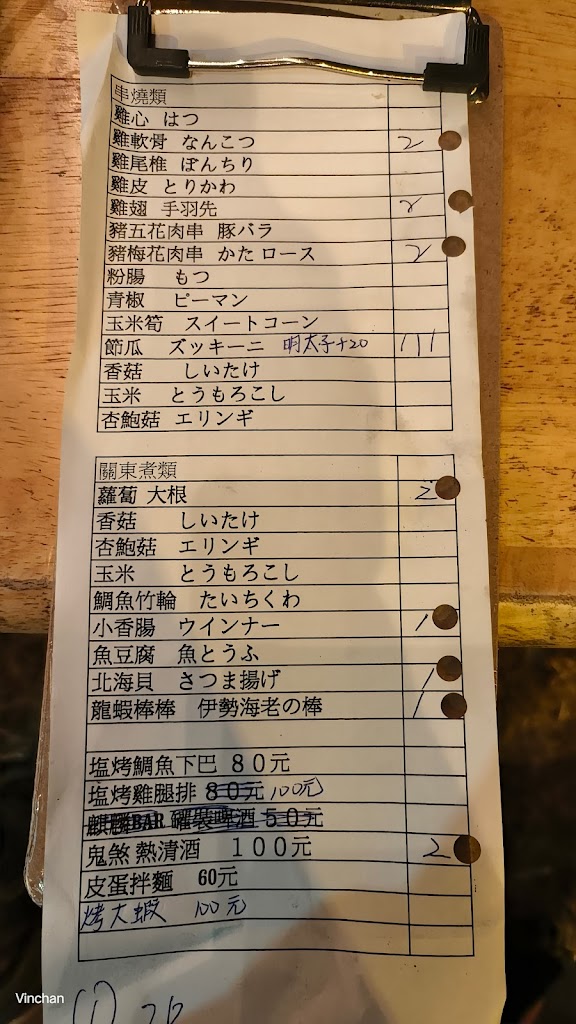 串燒類
雞心 はつ
雞軟骨 なんこつ 2
雞尾椎 ぼんちり
雞皮 とりかわ
雞翅 手羽先 2
豬五花肉串 豚バラ
豬梅花肉串 かたロース 2
粉腸 もつ
青椒 ピーマン
玉米筍 スイートコーン
節瓜 ズッキーニ 明太子+20 111
香菇 しいたけ
玉米 とうもろこし
杏鮑菇 エリンギ
關東煮類
蘿蔔 大根 2
香菇 しいたけ
杏鮑菇 エリンギ
玉米 とうもろこし
鯛魚竹輪 たいちくわ
小香腸 ウインナー 1
魚豆腐 魚とうふ
北海貝 さつま揚げ 1
龍蝦棒棒 伊勢海老の棒 1
塩烤鯛魚下巴 80元
塩烤雞腿排 80元 100元
麒麟BAR 罐裝啤酒 50元
鬼煞 熱清酒 100元 2
皮蛋拌麵 60元
烤大蝦 100元
Vinchan